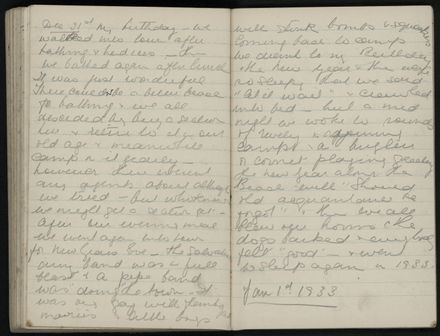 Dec 31st my birthday we
walked into town after
bathing & had ices — the
we bathed again after lunch
It was just wonderful
There could be a better place
for bathing & we all
decided to buy a section
here & retire to it in our
old age & meanwhile
camp in it yearly —
however there weren't
any agents about although
we tried — but
we might get a section yet —
After our evening meal
we went again into town
for New Years Eve — the Salvation
army band was in full
blast & a pipe band
was down the town. It
was very gay with
& little boys
with stink bombs & squeakers
Coming back to camp
we drank to my Birthday
& the New Year & then were
so sleepy that we said
"Ab'd wait" & crawled
into bed — but at mid
night we woke to sounds
of revelry in adjoining
camps & a bugler
or cornet playing
the new year along the
Beach with "Should
old acquaintance be
forgot" & then we all
blew our horns & the
dogs barked & everybody
felt good — & went
to sleep again in 1933.
Jan 1st 1933